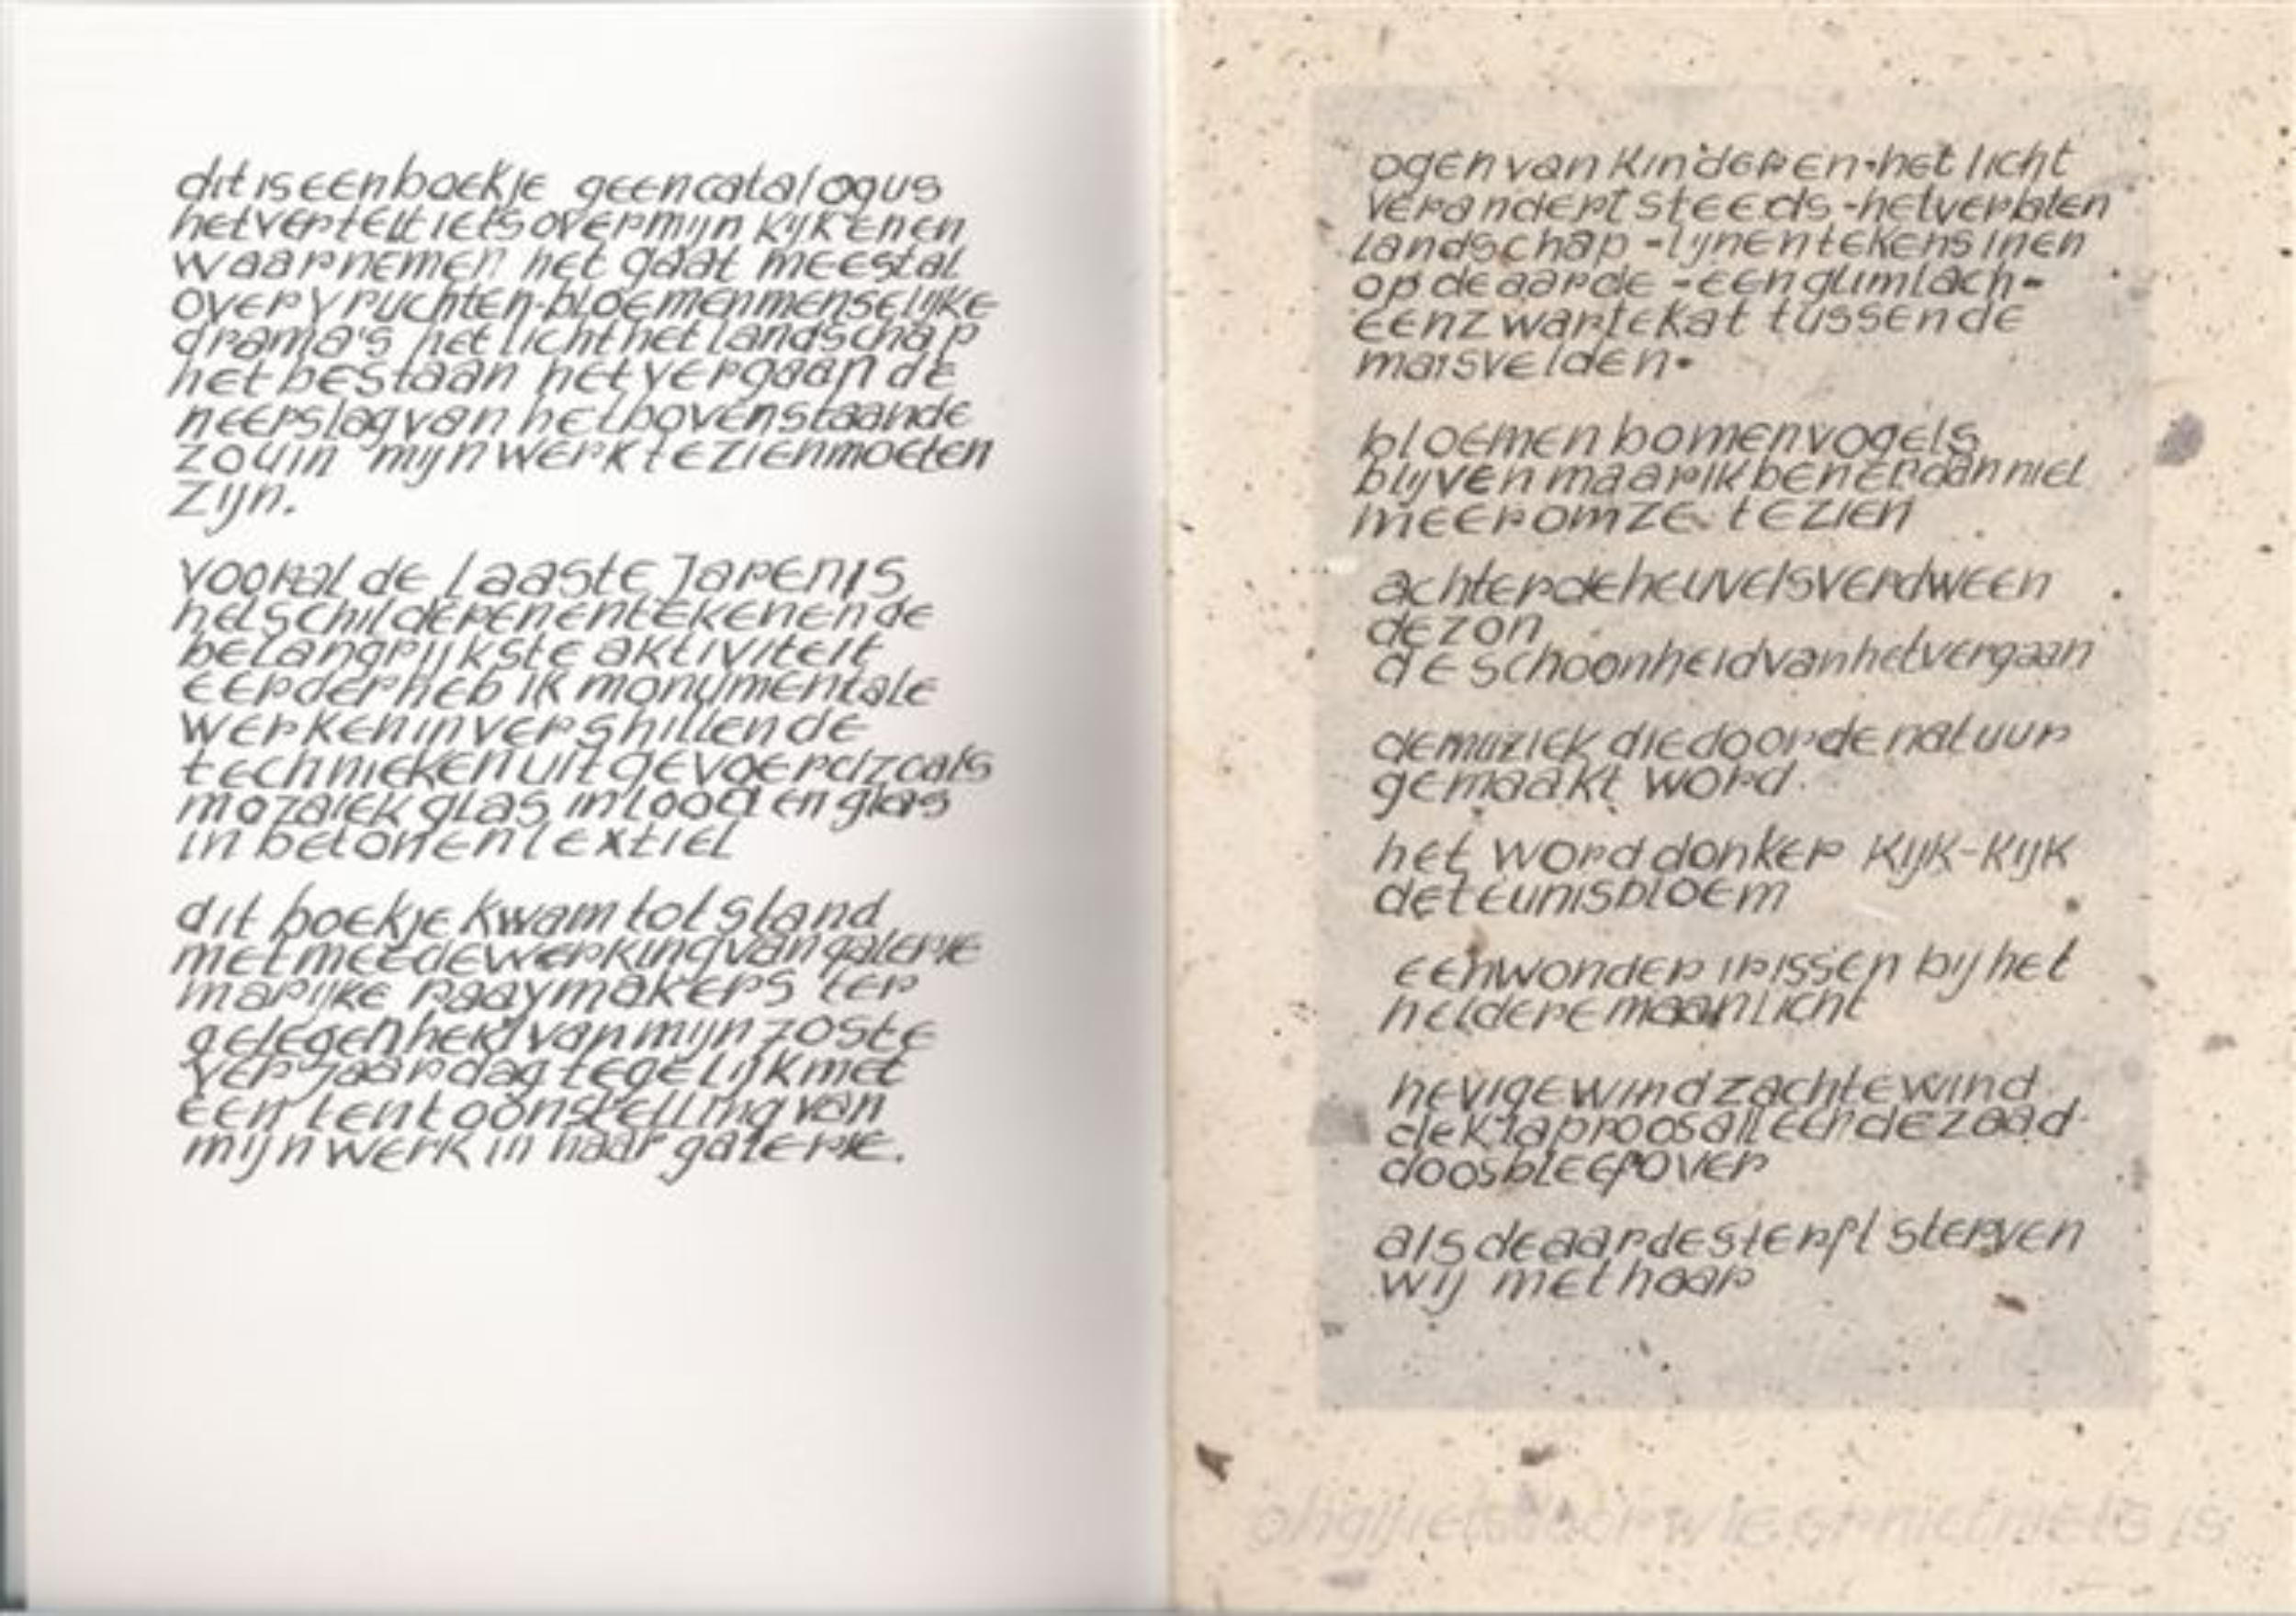 dit is een boekje geen catalogus
het vertelt iets over mijn kijk en en
waarnemen het gaat meestal
over vruchten-bloemen menselijke
drama's het licht het landschap
het bestaan het vergaan de
neerslag van het bovenstaande
zou in mijn werk te zien moeten
zijn.
vooral de laaste jaren is
het schilderen en tekenen de
belangrijkste aktiviteit
eerder heb ik monumentale
werken in vershillende
technieken uitgevoerd zoals
mozaiek glas in lood en glas
in beton en textiel
dit boekje kwam tot stand
met meedewerking van galerie
marijke raaymakers ter
gelegenheid van mijn 70ste
verjaardag tegelijk met
een tentoonstelling van
mijn werk in haar galerie.
ogen van kinderen-het licht
verandert steeds-het verlaten
landschap-lijnen tekens in en
op de aarde-een glimlach-
een zwarte kat tussen de
maisvelden.
bloemen bomen vogels
blijven maar ik ben er dan niet
meer om ze te zien
achter de heuvels verdween
de zon
de schoonheid van het vergaan
de muziek die door de natuur
gemaakt word.
het word donker kijk-kijk
de teunisbloem
een wonder irissen bij het
heldere maanlicht
hevige wind zachte wind
de klaproos alleen de zaad-
doos bleef over
als de aarde sterft sterven
wij met haar